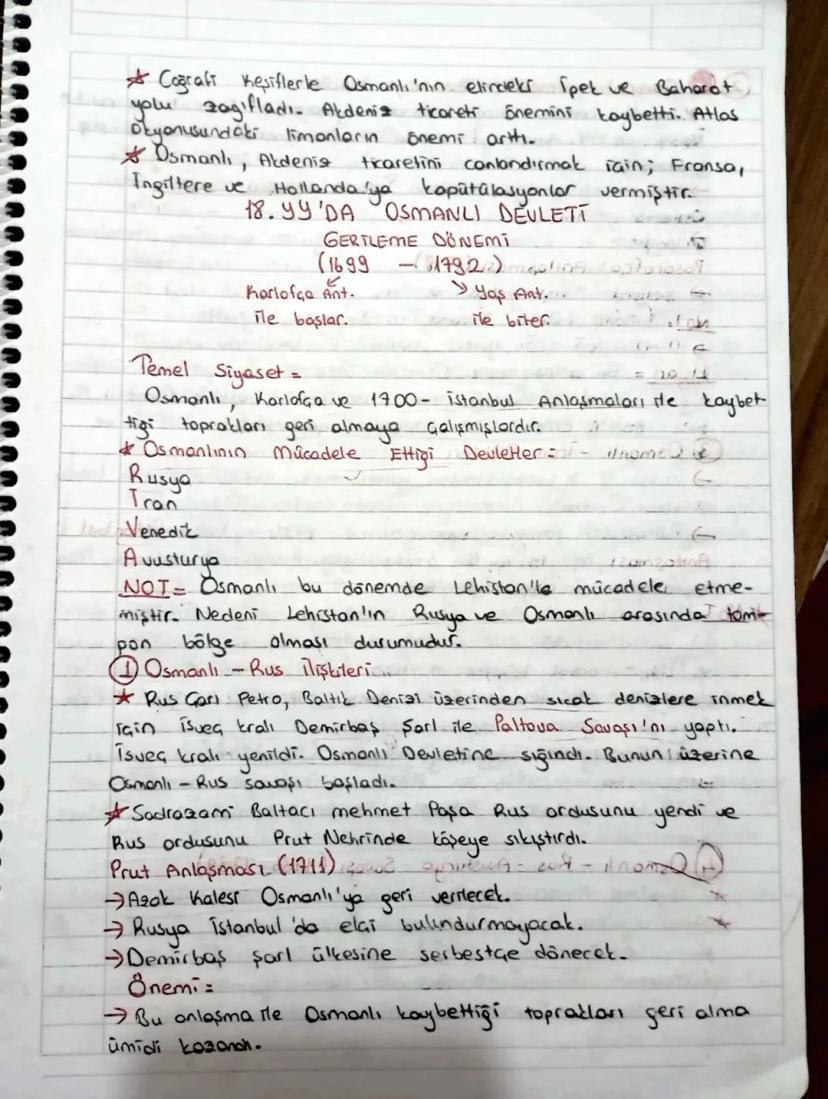 ★ Coğrafi Keşiflerle Osmanlı'nın elindeki İpek ve Baharat
yolu zayıfladı. Akdeniz ticareti önemini kaybetti. Atlas
Okyonusundaki limanların önemi arttı.
★ Osmanlı, Akdeniz ticaretini canlandırmak için; Fransa,
İngiltere ve Hollanda'ya kapütülasyonlar vermiştir.
18.YY'DA OSMANLI DEVLETİ
GERİLEME DÖNEMİ
(1699 - 1792)
Karlofça Ant. Yaş Ant.
ile başlar. ile biter.
Temel Siyaset =
Osmanlı, Karlofça ve 1700- İstanbul Anlaşmaları ile kaybet
tiği toprakları geri almaya çalışmışlardır.
★ Osmanlının Mücadele Ettiği Devletler =
Rusya
İran
Venedik
Avusturya
NOT= Osmanlı bu dönemde Lehistan'la mücadele etme-
miştir. Nedeni Lehistan'ın Rusya ve Osmanlı arasında tam-
pon bölge olması durumudur.
① Osmanlı - Rus İlişkileri
★ Rus Çarı Petro, Baltık Denizi üzerinden sıcak denizlere inmek
için İsveç kralı Demirbaş Şarl ile Paltova Savaşı'nı yaptı.
İsveç kralı yenildi. Osmanlı Devletine sığındı. Bunun üzerine
Osmanlı - Rus savaşı başladı.
★ Sadrazam Baltacı mehmet Paşa Rus ordusunu yendi ve
Rus ordusunu Prut Nehrinde köşeye sıkıştırdı.
Prut Anlaşması (1711)
→ Azak Kalesi Osmanlı'ya geri verilecek.
→ Rusya İstanbul'da elçi bulundurmayacak.
→ Demirbaş Şarl ülkesine serbestçe dönecek.
Önemi =
→ Bu anlaşma ile Osmanlı kaybettiği toprakları geri alma
ümidi kazandı.